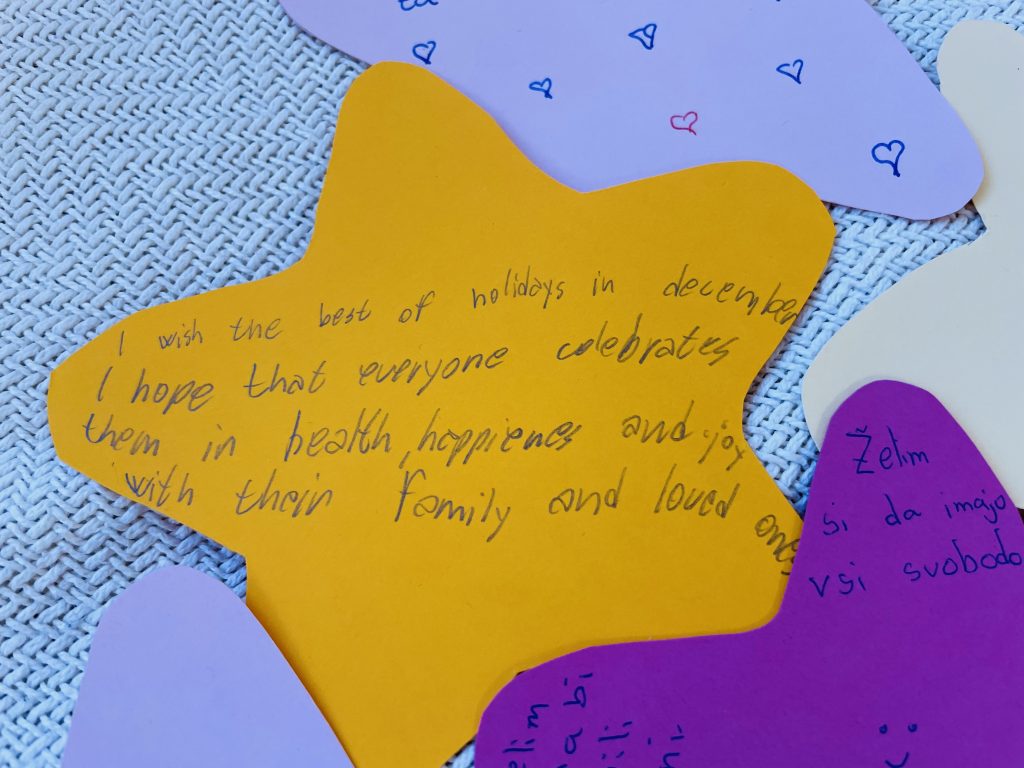 I wish the best of holidays in december
I hope that everyone celebrates
them in health, happienes and joy
with their family and loved ones
Želim
si da imajo
vsi svobodo